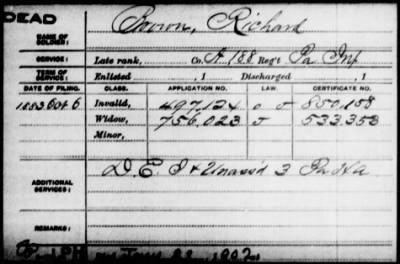 DEAD
NAME OF SOLDIER: Brown, Richard
SERVICE: Late rank, Co. A 188 Reg't Pa Inf
TERM OF SERVICE: Enlisted , 1 Discharged , 1
DATE OF FILING. CLASS. APPLICATION NO. LAW. CERTIFICATE NO.
1883 Oct 6 Invalid, 497,124 850,158
Widow, 756,023 533,353
Minor,
ADDITIONAL SERVICES: D. E. I & Unass'd 3 Pa H A
REMARKS:
22, 1892